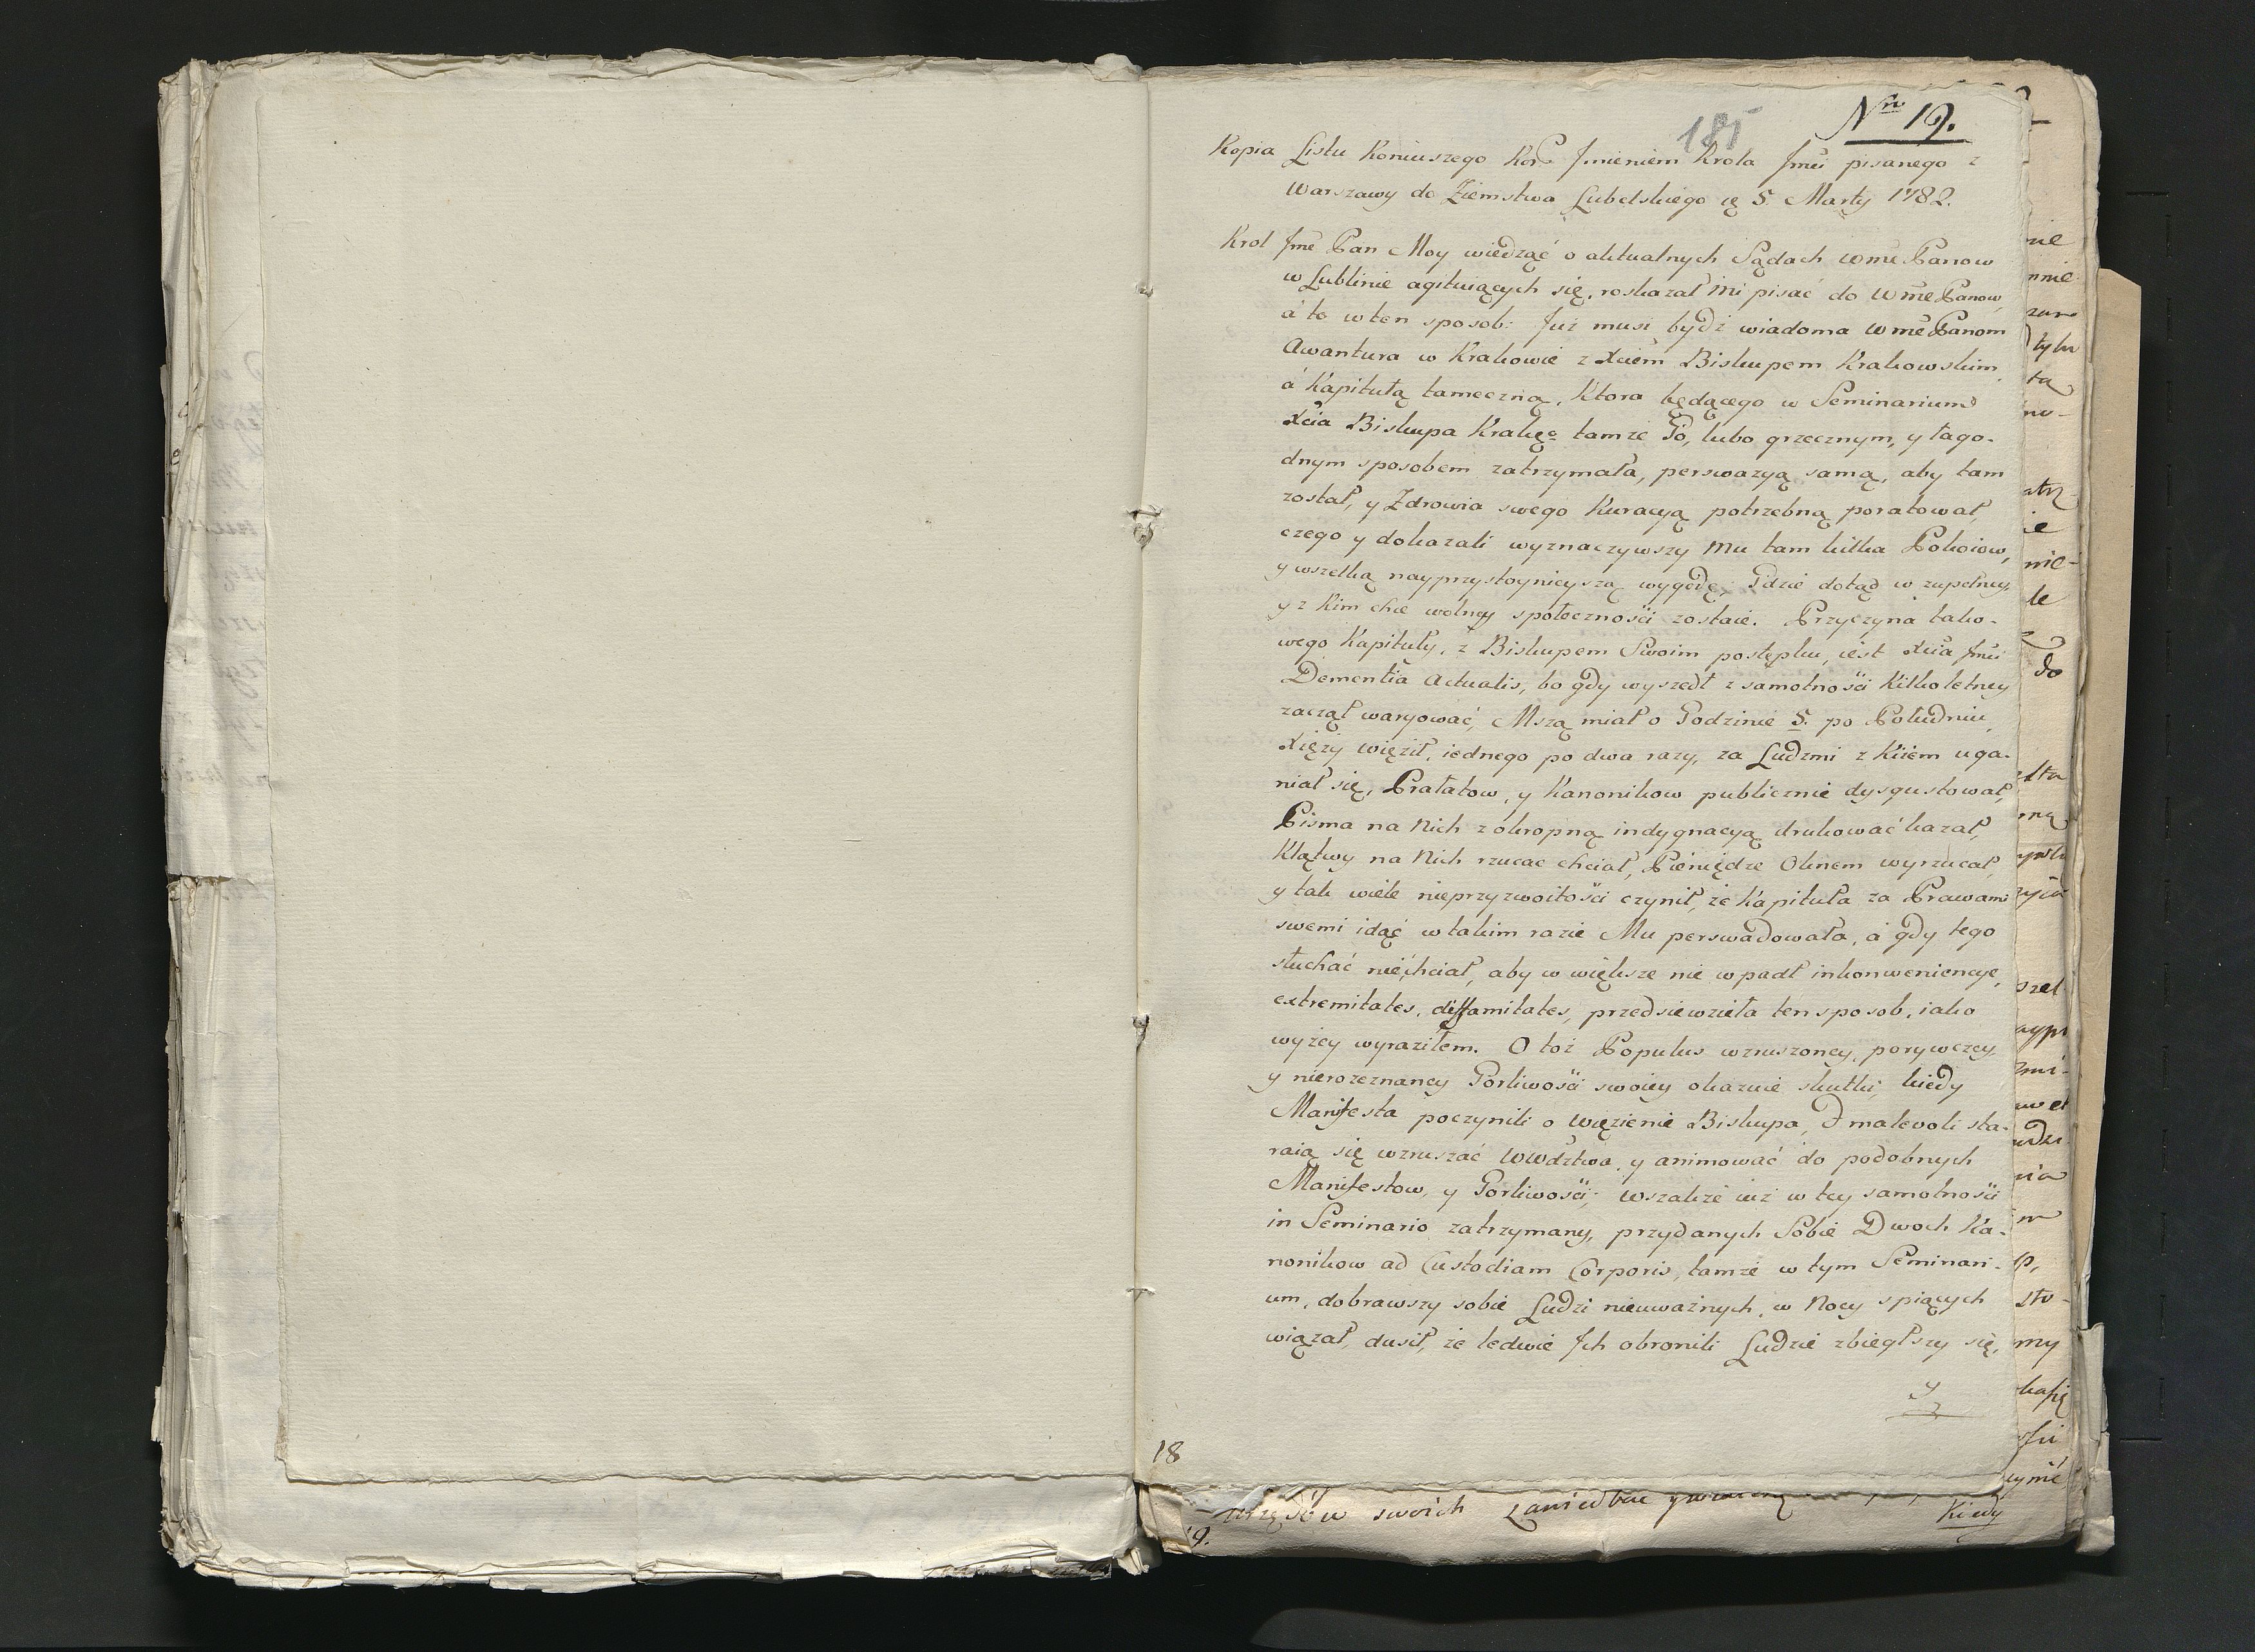 185
Nro 19.
Kopia Listu Koniuszego Kor Jmieniem Krola Jmci pisanego z
Warszawy do Ziemstwa Lubelskiego 5 Marty 1782.
Krol Jmć Pan Moy wiedząć o aktualnych Sądach Wmć Panow
w Lublinie agituiących się, roskazał mi pisać do Wmć Panow,
á to w ten sposob: Już musi bydź wiadoma Wmć Panom
Awantura w Krakowie z Xciem Biskupem Krakowskim,
á Kapitułą tameczną, Ktora będącego w Seminarium
Xcia Biskupa Krakgo tamże Go, lubo grzecznym, y łago-
dnym sposobem zatrzymała, perswazyą samą, aby tam
został, y Zdrowia swego Kuracyą potrzebną poratował,
czego y dokazali wyznaczywszy Mu tam kilka Pokoiow,
y wszelką nayprzystoynieyszą wygodę; Gdzie dotąd w zupełney,
y z Kim chce wolney społecznośći zostaie. Przyczyna tako-
wego Kapituły, z Biskupem Swoim postępku, iest Xcia Jmci
Dementia Actualis, bo gdy wyszedł z samotnośći Kilkoletney
zaczął waryować, Mszą miał o Godzinie 5. po Południu,
Xięży więził, iednego po dwa razy, za Ludzmi z Kiiem uga-
niał się, Prałatow, y Kanonikow publicznie dysgustował,
Pisma na Nich z okropną indygnacyą drukować kazał,
Klątwy na Nich rzucac chciał, Pieniędze Oknem wyrzucał,
y tak wiele nieprzyzwoitośći czynił, że Kapituła za Prawami
swemi idąć w takim razie Mu perswadowała, á gdy tego
słuchać niechciał, aby w większe nie wpadł inkonweniencye,
extremitates, diffamitates, przedsiewzieła ten sposob, iako
wyżey wyraziłem. O toż Populus wzruszoney, porywczey,
y nierozeznaney Gorliwośći swoiey okazuie skutki, kiedy
Manifesta poczynili o więzienie Biskupa, & malevoli sta-
raią się wzruszáć Wwdztwa, y animować do podobnych
Manifestow, y Gorliwośći; Wszakże iuż w tey samotnośći
in Seminario zatrzymany, przydanych Sobie Dwoch Ka-
nonikow ad Custodiam Corporis, tamże w tym Seminari-
um, dobrawszy sobie Ludzi nieuważnych, w Nocy spiących
wiązał, dusił, że ledwie Jch obronili Ludzie zbiegłszy się,
y
18
swoich
Kiedy
19.